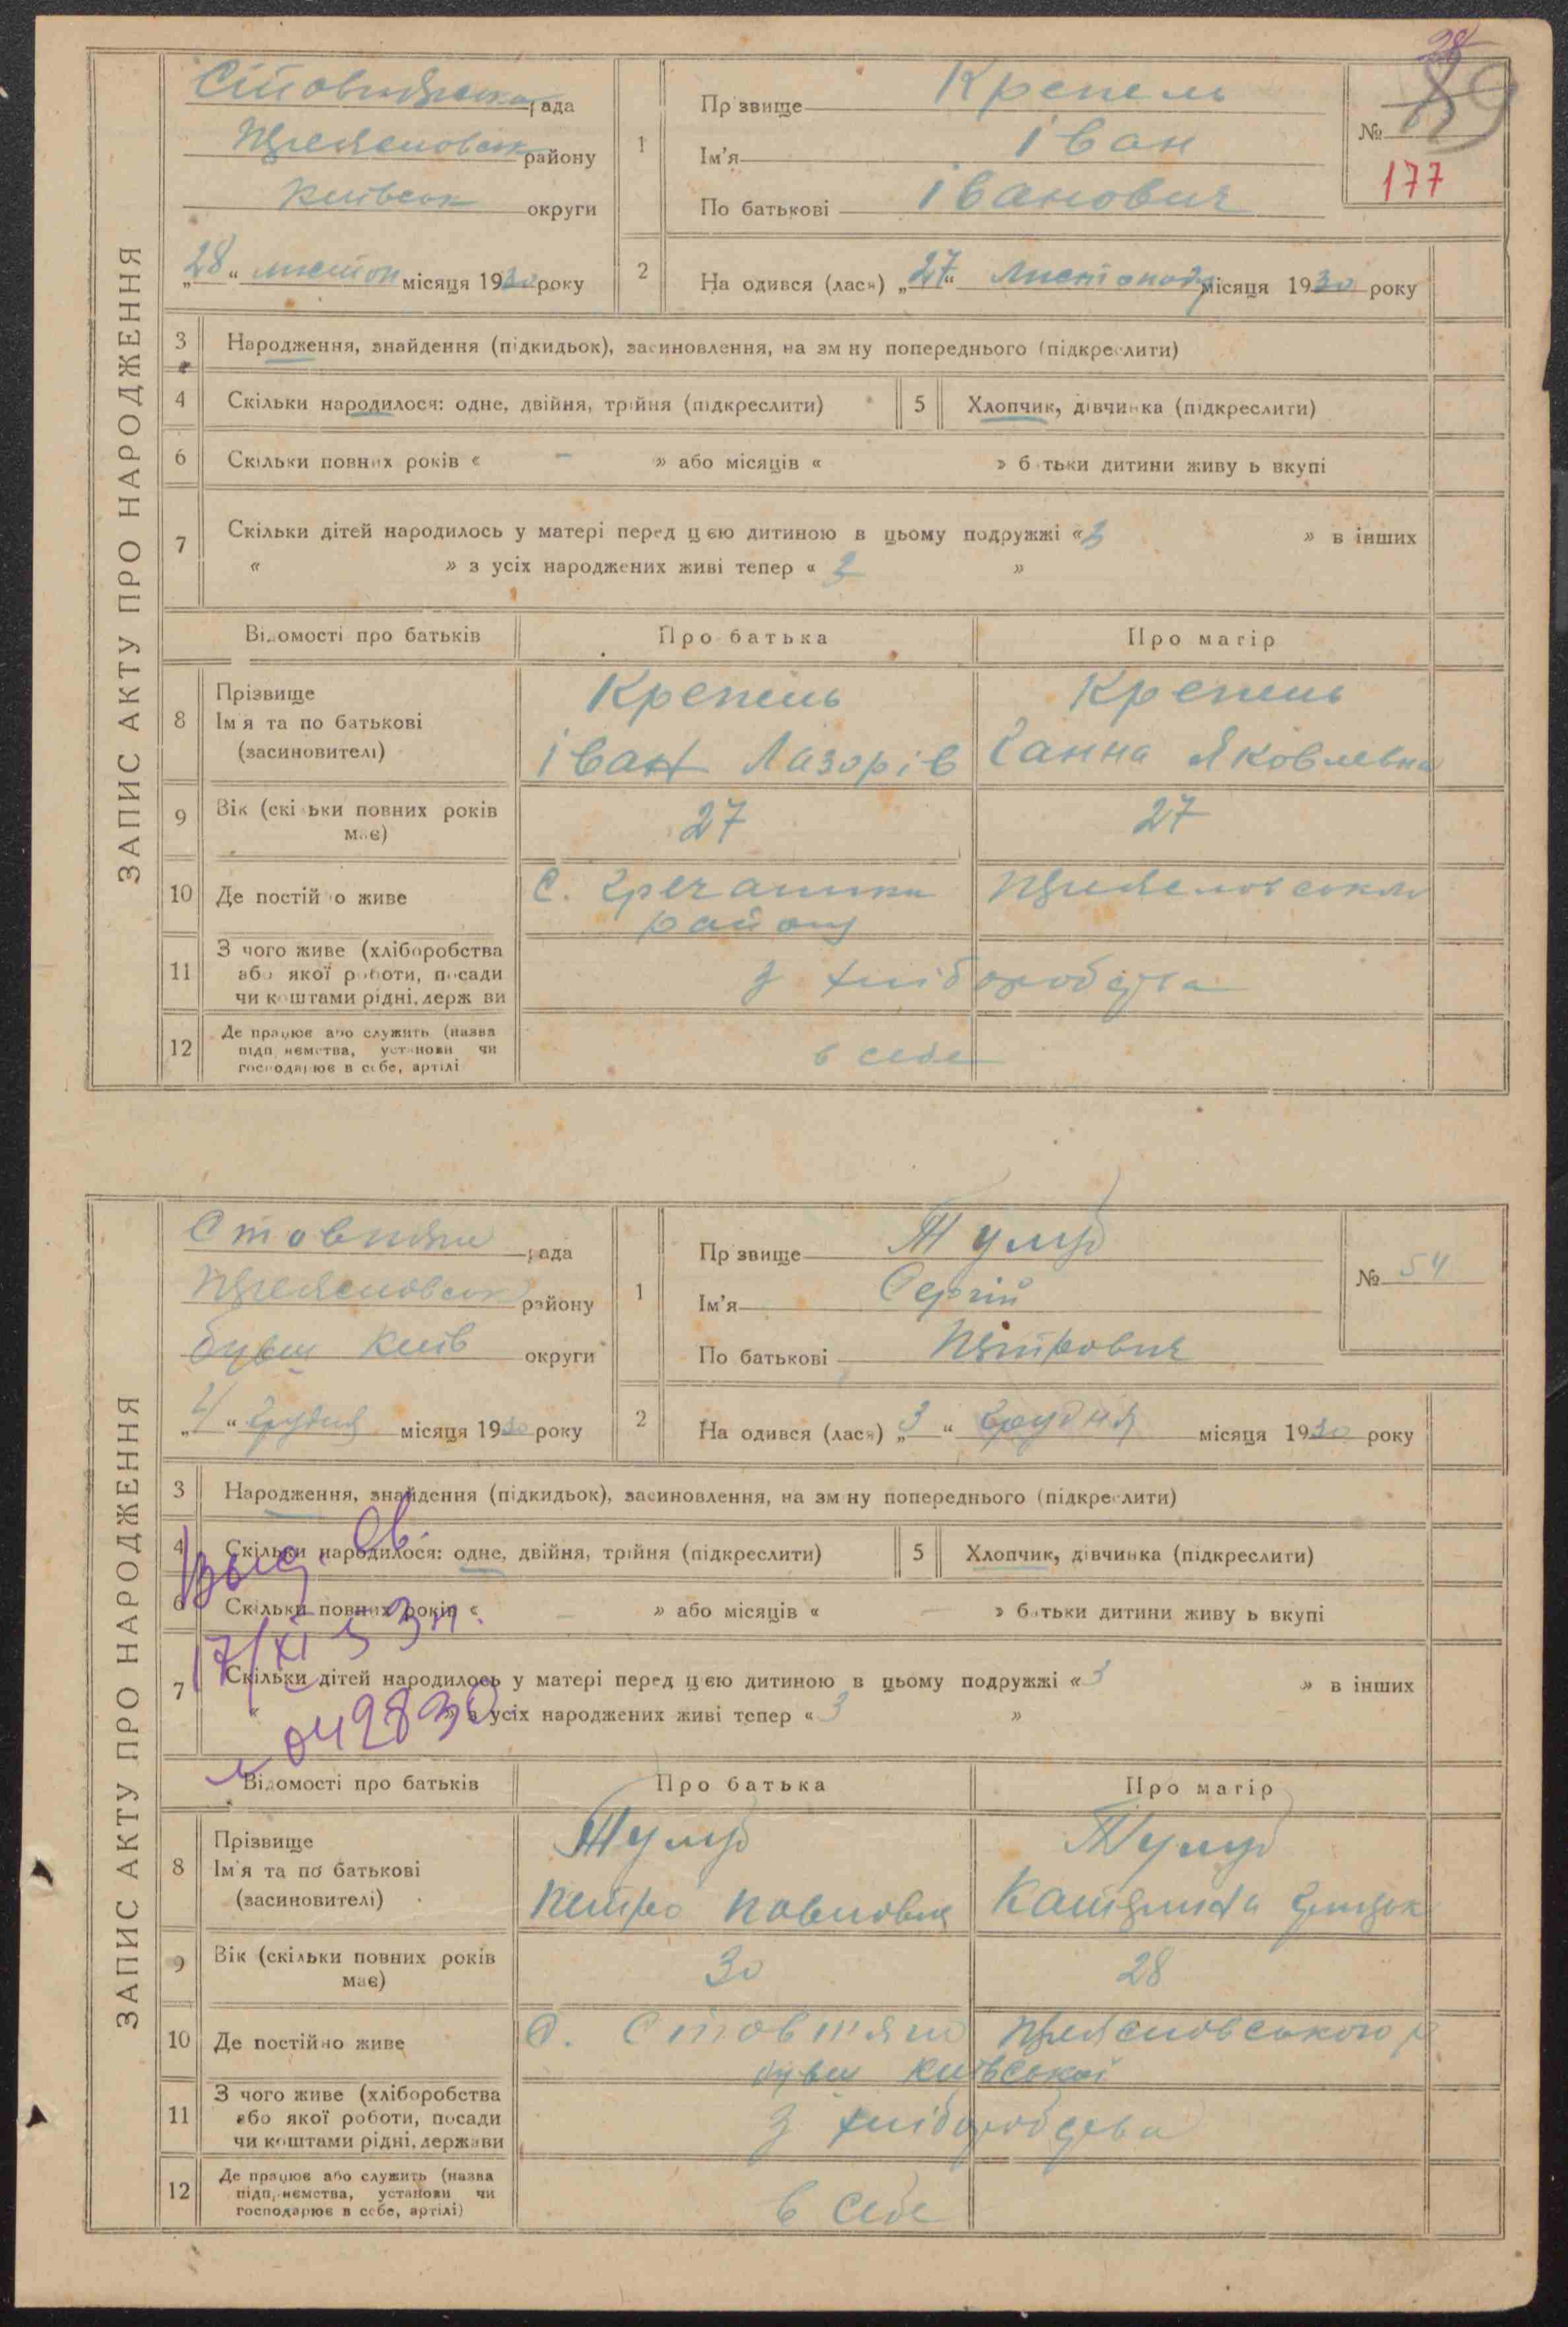 ЗАПИС АКТУ ПРО НАРОДЖЕННЯ
рада
району
Київськ округи
„28“ листоп місяця 1930 року
1 Прізвище Крепель
Ім’я Іван
По батькові Іванович
№ 89
177
2 Народився (лася) „27“ Листопада місяця 1930 року
3 Народження, знайдення (підкидьок), засиновлення, на зміну попереднього (підкреслити)
4 Скільки народилося: одне, двійня, трійня (підкреслити)
5 Хлопчик, дівчинка (підкреслити)
6 Скільки повних років « – » або місяців « » батьки дитини живуть вкупі
7 Скільки дітей народилось у матері перед цією дитиною в цьому подружжі «3 » в інших
« » з усіх народжених живі тепер « 2 »
Відомості про батьків Про батька Про матір
8 Прізвище
Ім’я та по батькові
(засиновителі)
Крепель
Іван Лазорів
Крепель
Ганна Яковлевна
9 Вік (скільки повних років має) 27 27
10 Де постійно живе
С. Гречаники
району
11 З чого живе (хліборобства
або якої роботи, посади
чи коштами рідні, держави
з хліборобства
12 Де працює або служить (назва
підприємства, установи чи
господарює в себе, артілі
в себе
ЗАПИС АКТУ ПРО НАРОДЖЕННЯ
Стовпяги рада
району
бувш Київ округи
„4“ Грудня місяця 1930 року
1 Прізвище Тулуб
Ім’я Сергій
По батькові Петрович
№ 54
2 Народився (лася) „3“ Грудня місяця 1930 року
3 Народження, знайдення (підкидьок), засиновлення, на зміну попереднього (підкреслити)
4 Скільки народилося: одне, двійня, трійня (підкреслити)
5 Хлопчик, дівчинка (підкреслити)
6 Скільки повних років « – » або місяців « – » батьки дитини живуть вкупі
7 Скільки дітей народилось у матері перед цією дитиною в цьому подружжі «3 » в інших
« » з усіх народжених живі тепер « 3 »
Відомості про батьків Про батька Про матір
8 Прізвище
Ім’я та по батькові
(засиновителі)
Тулуб
Петро Павлович
Тулуб
9 Вік (скільки повних років має) 30 28
10 Де постійно живе
С. Стовп'яги
бувш Київської
11 З чого живе (хліборобства
або якої роботи, посади
чи коштами рідні, держави
з хліборобства
12 Де працює або служить (назва
підприємства, установи чи
господарює в себе, артілі)
в себе